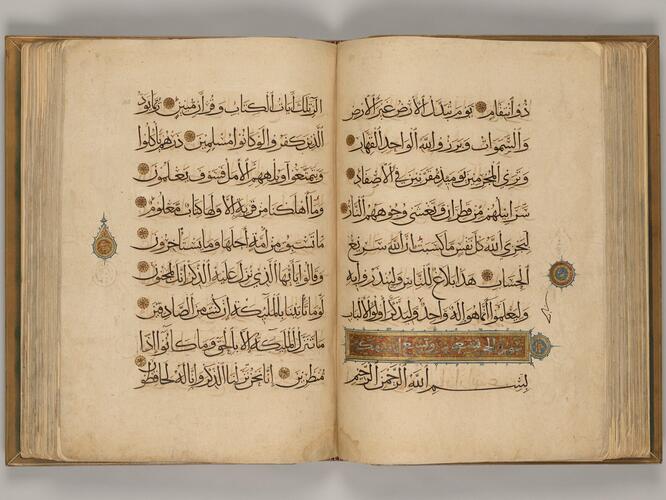 ذو انتقام يوم تبدل الأرض غير الأرض
والسموات وبرزوا لله الواحد القهار
وترى المجرمين يومئذ مقرنين في الأصفاد
سرابيلهم من قطران وتغشى وجوههم النار
ليجزي الله كل نفس ما كسبت إن الله سريع
الحساب هذا بلاغ للناس ولينذروا به
وليعلموا أنما هو إله واحد وليذكر أولوا الألباب
الحجر تسعون وتسع
بسم الله الرحمن الرحيم
الر تلك آيات الكتاب وقرآن مبين ربما يود
الذين كفروا لو كانوا مسلمين ذرهم يأكلوا
ويتمتعوا ويلههم الأمل فسوف يعلمون
وما أهلكنا من قرية إلا ولها كتاب معلوم
ما تسبق من أمة أجلها وما يستأخرون
وقالوا يا أيها الذي نزل عليه الذكر إنك لمجنون
لو ما تأتينا بالملئكة إن كنت من الصادقين
ما تنزل الملئكة إلا بالحق وما كانوا إذا
منظرين إنا نحن نزلنا الذكر وإنا له لحافظون